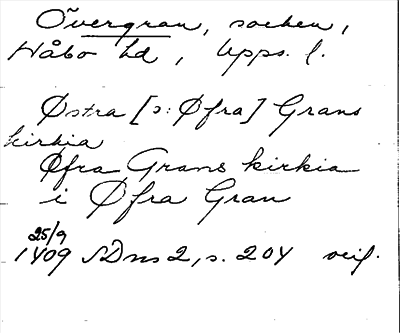 Övergran, socken,
Håbo hd, Upps. l.
Østra [ɔ: Øfra] Grans
kirkia
Øfra Grans kirkia
i Øfra Gran
25/9
1409 SDns 2, s. 204 vid.